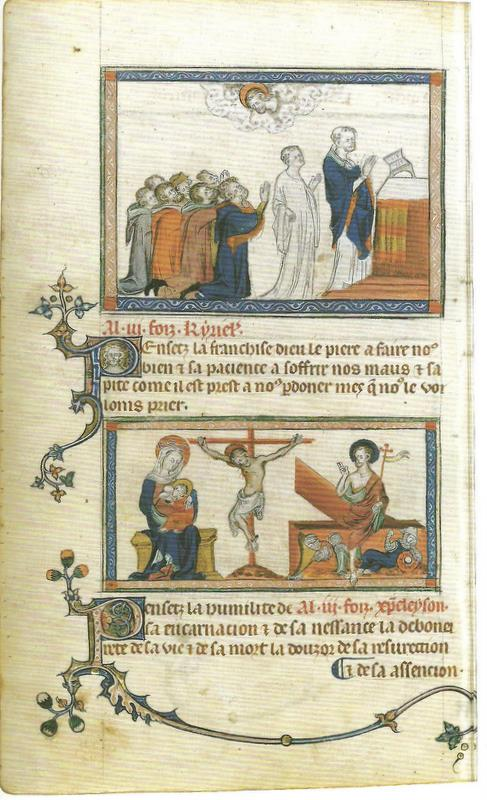 Al · iij · foiz · Kyriel'.
Pensetz la franchise dieu le piere a faire no⁹
bien ⁊ sa pacience a soffrir nos maus ⁊ sa
pite come il est prest a no⁹ pdoner mes q̄ no⁹ le voi
loms prier.
Pensetz la humilite de Al · iij · foiz · xp̄eleyson ·
sa encarnacion ⁊ de sa nessance la debonei
rete de sa vie ⁊ de sa mort la douzor de sa resurection
⁊ de sa assencion ·